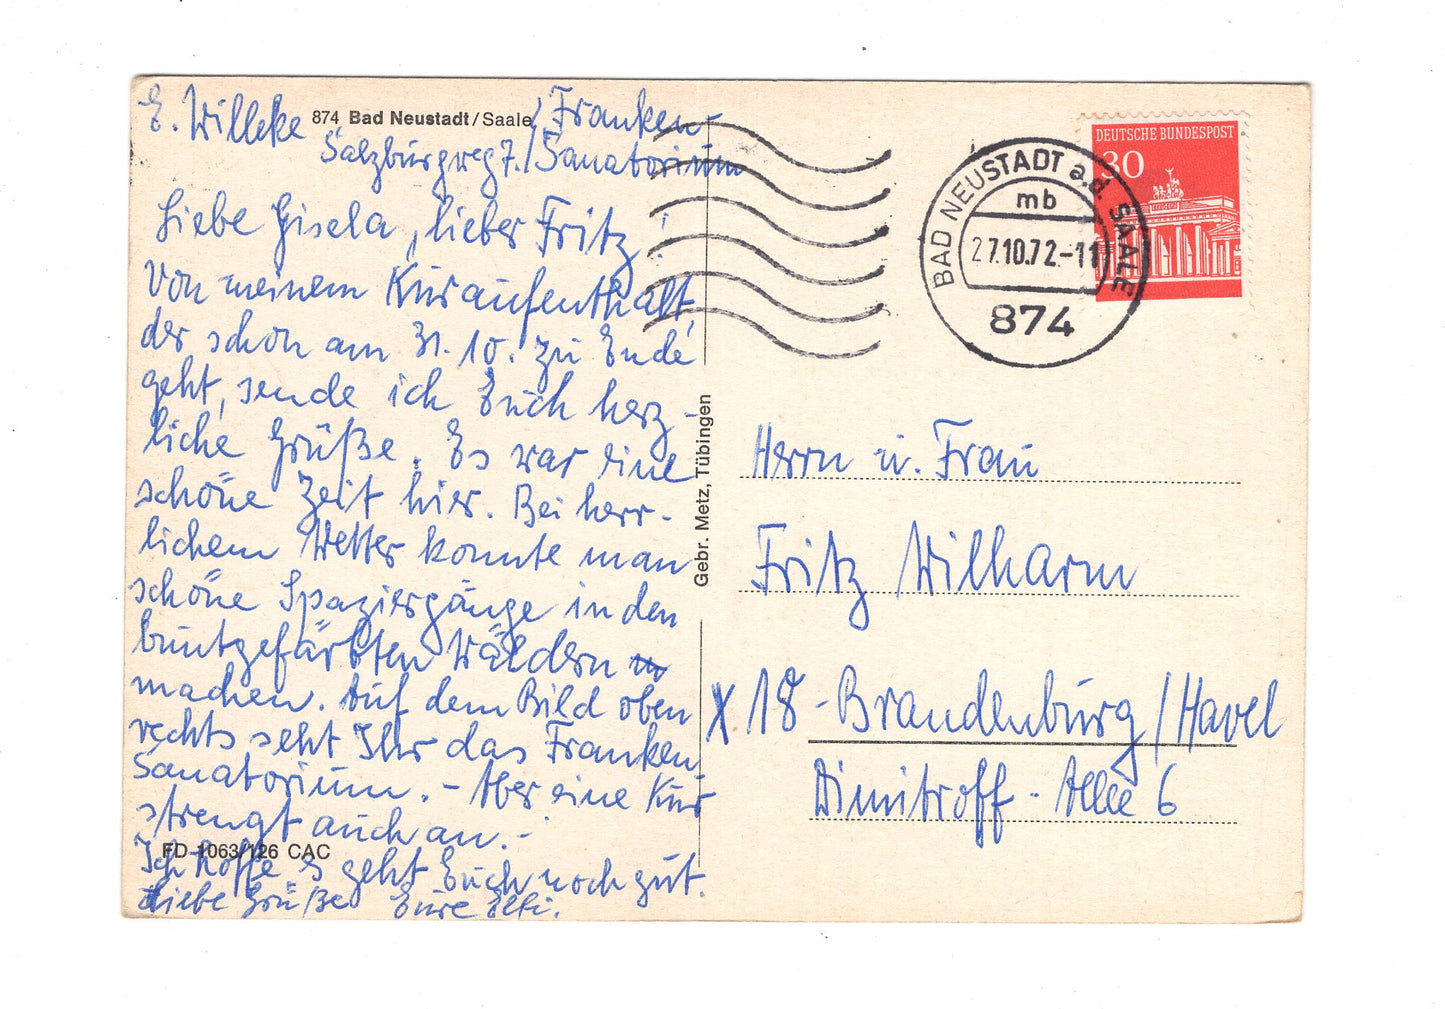 E. Willeke 874 Bad Neustadt/Saale, Franken-
Salzburgweg 7./Sanatorium
Liebe Gisela, lieber Fritz!
Von meinem Kuraufenthalt,
der schon am 31.10. zu Ende
geht, sende ich Euch herz-
liche Grüße. Es war eine
schöne Zeit hier. Bei herr-
lichem Wetter konnte man
schöne Spaziergänge in den
buntgefärbten Wäldern
machen. Auf dem Bild oben
rechts seht Ihr das Franken-
Sanatorium. - Aber eine Kur
strengt auch an. -
FD 1063/126 CAC
Ich hoffe es geht Euch noch gut.
Liebe Grüße Eure Elli.
Gebr. Metz, Tübingen
DEUTSCHE BUNDESPOST
30
BAD NEUSTADT a.d. SAALE
mb
27.10.72-11
874
Herrn u. Frau
Fritz Wilharm
X 18 - Brandenburg/Havel
Dimitroff-Allee 6